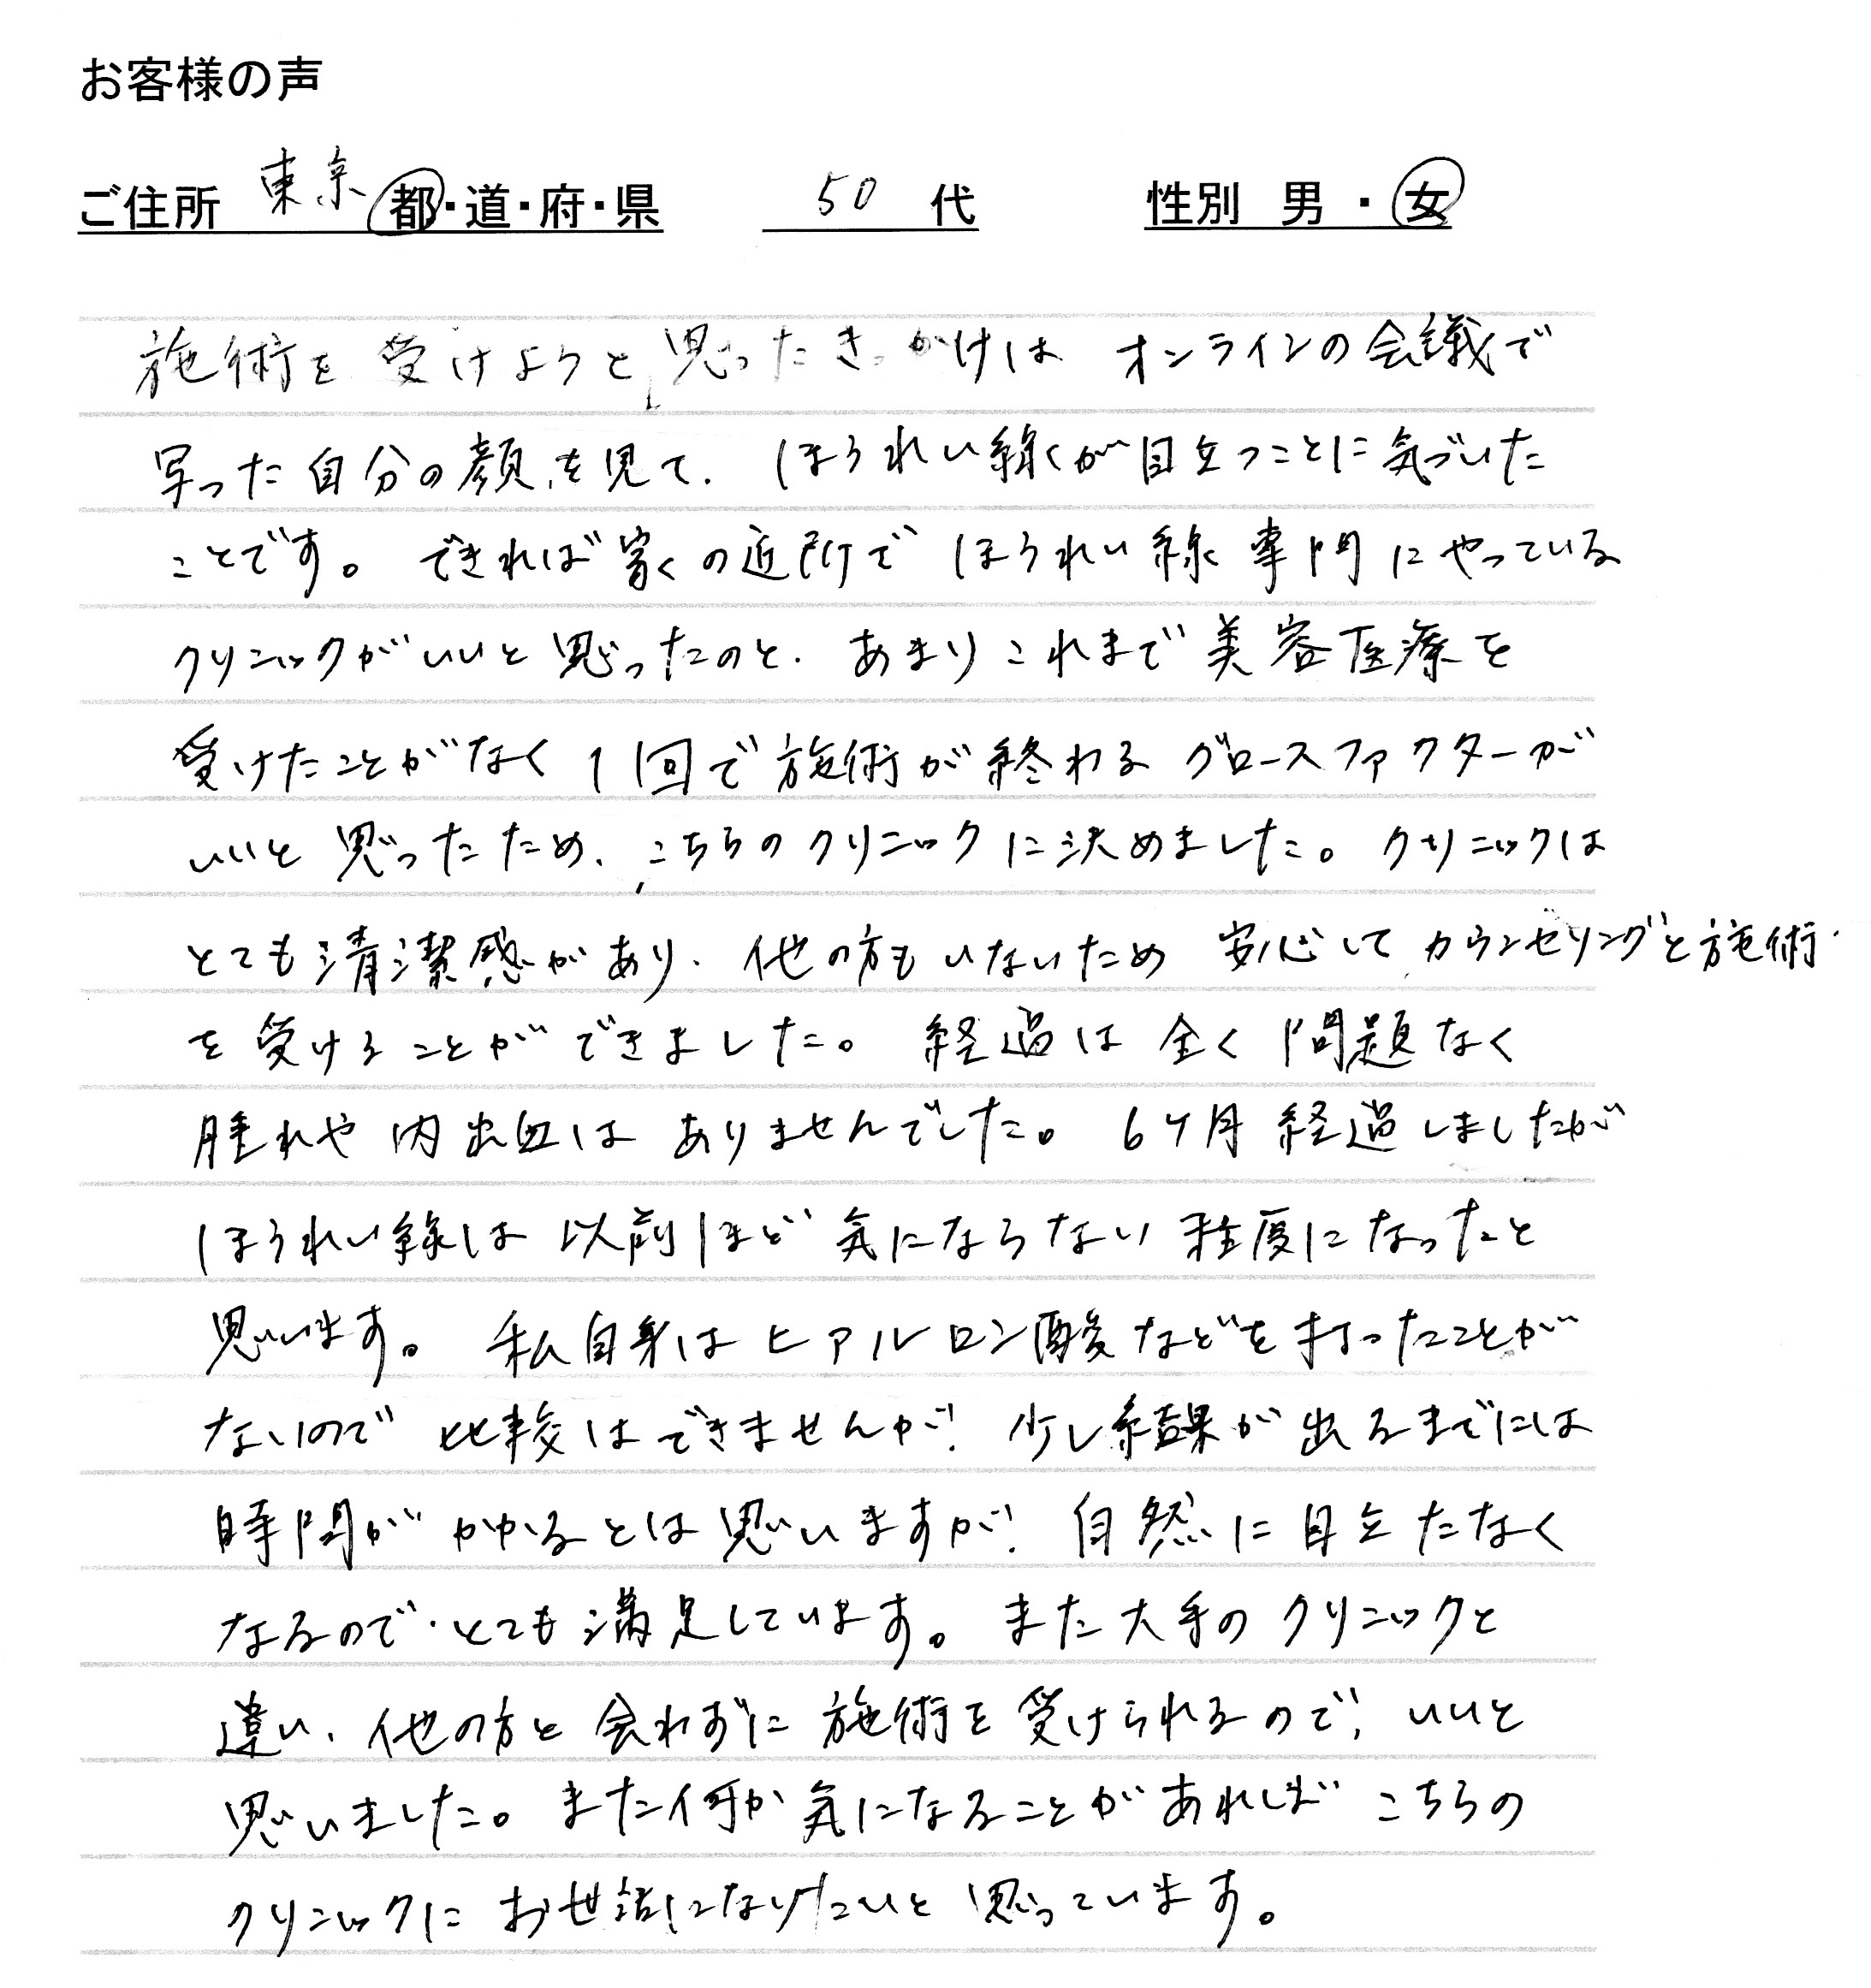 お客様の声
ご住所 東京 都・道・府・県 50 代 性別 男・女
施術を受けようと思ったきっかけは オンラインの会議で
写った自分の顔を見て、ほうれい線が目立つことに気づいた
ことです。できれば家の近所でほうれい線専門にやっている
クリニックがいいと思ったのと、あまりこれまで美容医療を
受けたことがなく1回で施術が終わるグロースファクターが
いいと思ったため、こちらのクリニックに決めました。クリニックは
とても清潔感があり、他の方もいないため 安心してカウンセリングと施術
を受けることができました。経過は全く問題なく
腫れや内出血はありませんでした。6ヶ月経過しましたが
ほうれい線は以前ほど気にならない程度になったと
思います。私自身はヒアルロン酸などを打ったことが
ないので比較はできませんが、少し結果が出るまでには
時間がかかるとは思いますが、自然に目立たなく
なるので、とても満足しています。また大手のクリニックと
違い、他の方と会わずに施術を受けられるので、いいと
思いました。また何か気になることがあればこちらの
クリニックにお世話になりたいと思っています。